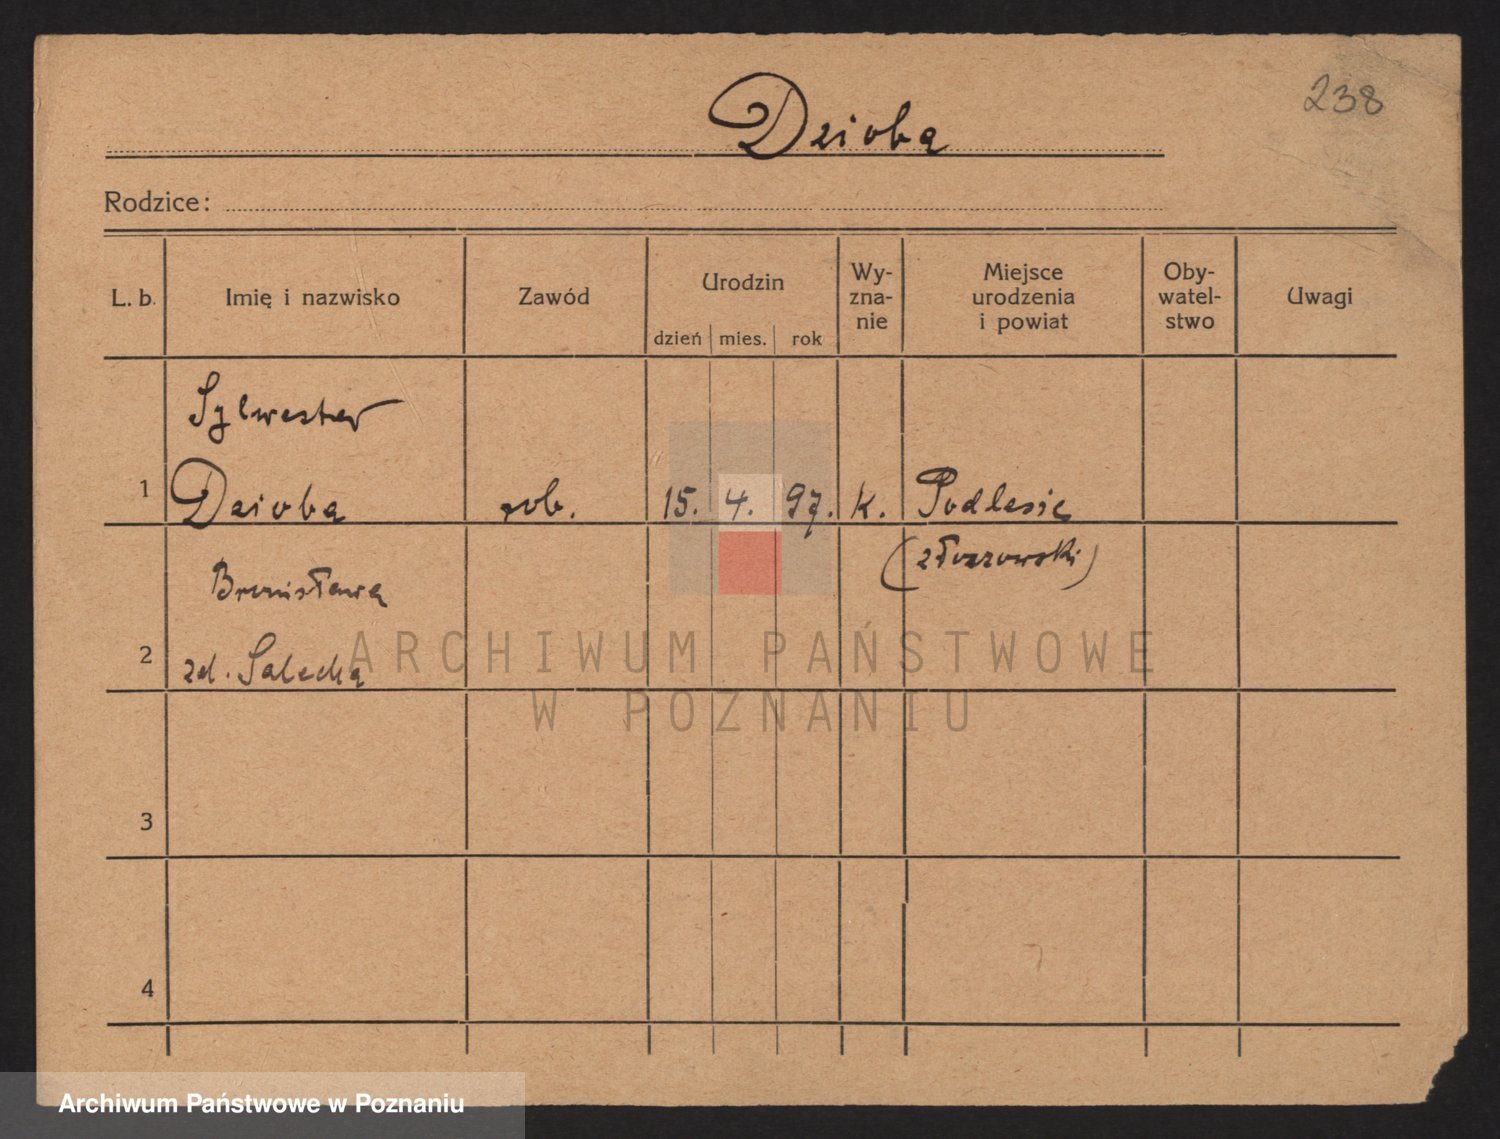 238
Dzioba
Rodzice:
L. b. Imię i nazwisko Zawód Urodzin dzień mies. rok Wy-zna-nie Miejsce urodzenia i powiat Oby-watel-stwo Uwagi
Sylwester
1 Dzioba rob. 15. 4. 97. k. Podlesie
(złoczowski)
Bronisława
2 zd. Salecka
3
4
ARCHIWUM PAŃSTWOWE
W POZNANIU
Archiwum Państwowe w Poznaniu